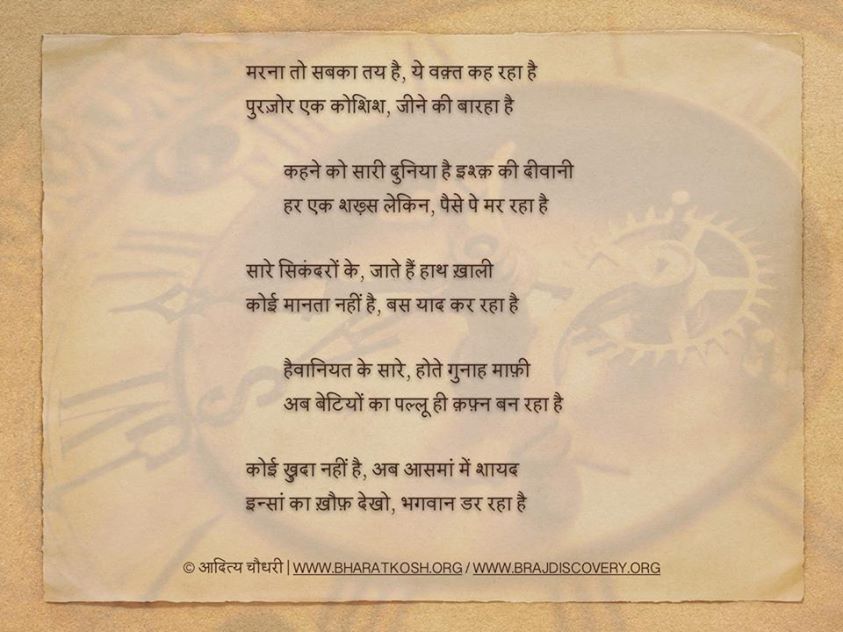 मरना तो सबका तय है, ये वक़्त कह रहा है
पुरज़ोर एक कोशिश, जीने की बारहा है
कहने को सारी दुनिया है इश्क़ की दीवानी
हर एक शख़्स लेकिन, पैसे पे मर रहा है
सारे सिकंदरों के, जाते हैं हाथ ख़ाली
कोई मानता नहीं है, बस याद कर रहा है
हैवानियत के सारे, होते गुनाह माफ़ी
अब बेटियों का पल्लू ही क़फ़्न बन रहा है
कोई ख़ुदा नहीं है, अब आसमां में शायद
इन्सां का ख़ौफ़ देखो, भगवान डर रहा है
© आदित्य चौधरी | WWW.BHARATKOSH.ORG / WWW.BRAJDISCOVERY.ORG